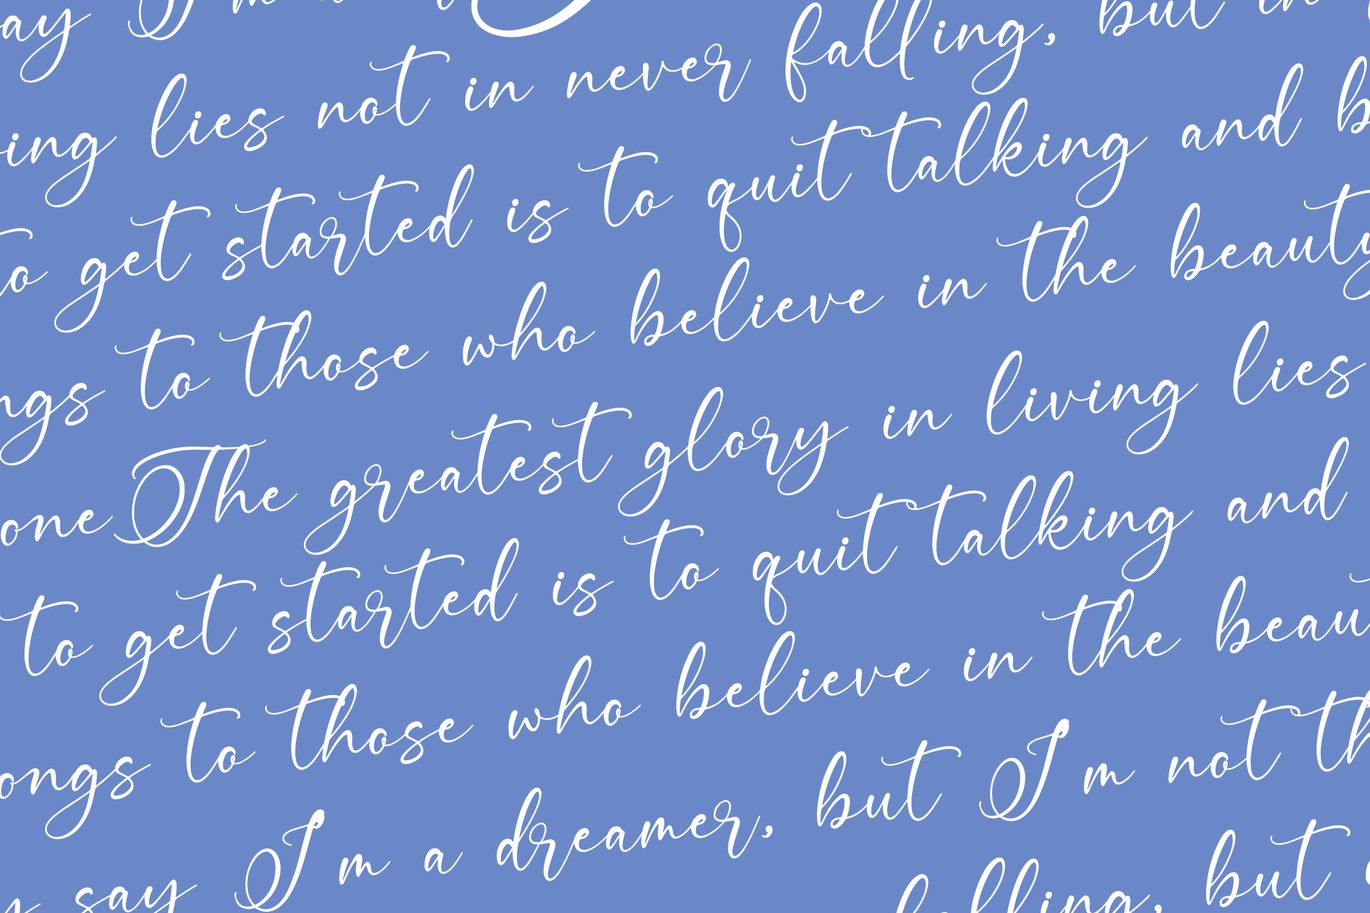 ay I m a
ing lies not in never falling, but in
to get started is to quit talking and b
ngs to those who believe in the beauty
one The greatest glory in living lies
to get started is to quit talking and
ongs to those who believe in the beau
y say I m a dreamer, but I m not th
falling, but